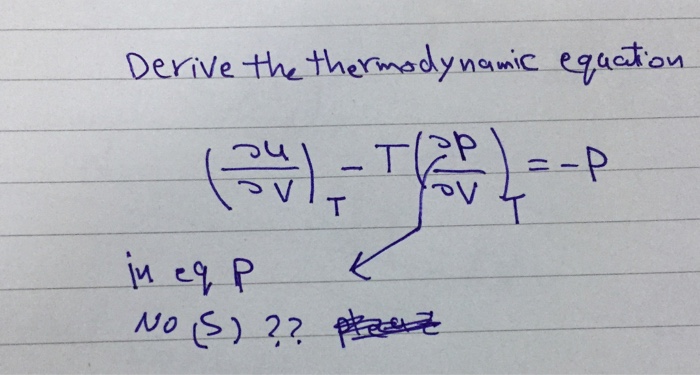 Derive the thermodynamic equation
(∂u/∂V)_T - T(∂P/∂V)_T = -P
in eq P
No (S) ??